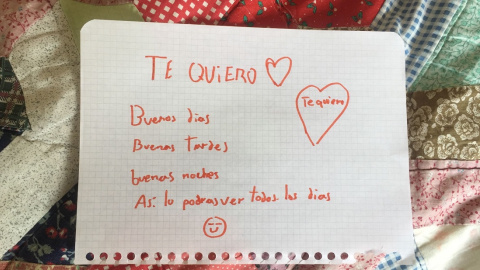 TE QUiERO
Te quiero
Buenos dias
Buenas Tardes
buenas noches
Asi lo podras ver todos los dias